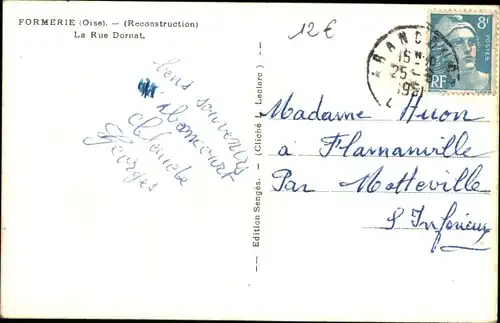 FORMERIE (Oise). — (Reconstruction)
La Rue Dornat.
12€
8F
POSTES
RF
15
25
195
Bons souvenirs
Georges
Edition Sengès. — (Cliché L. Leclerc)
Madame Huon
à Flamanville
Par Motteville
S Inférieure